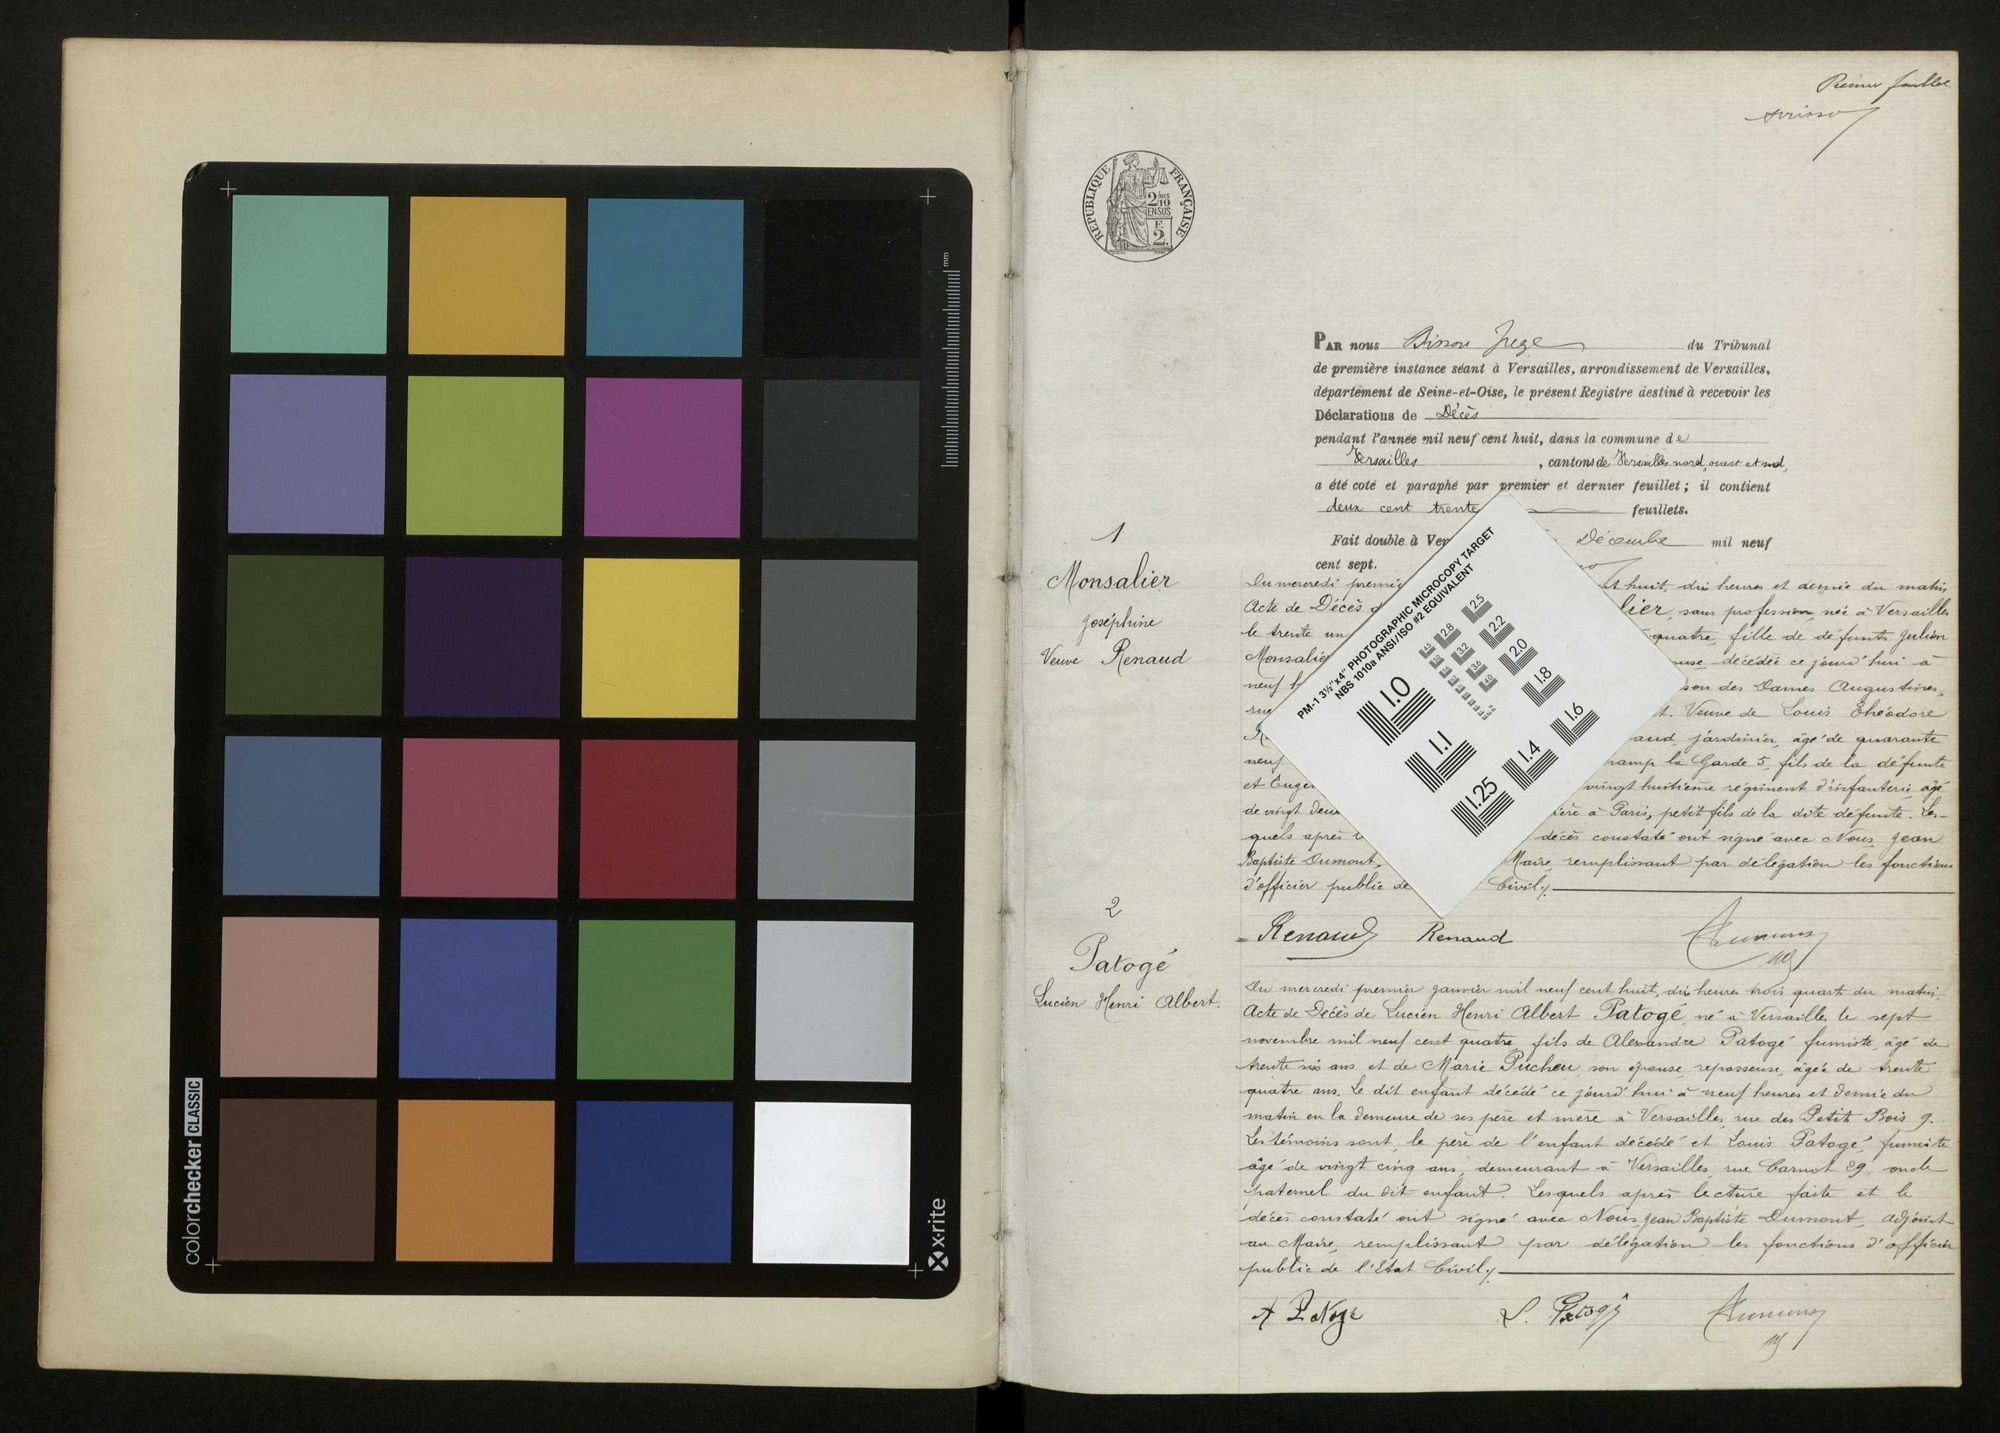 mm
colorchecker CLASSIC
x-rite
Premier feuillet
RÉPUBLIQUE FRANÇAISE
2/10
EN SUS
F.
2.
PAR nous Bisson Juge du Tribunal
de première instance séant à Versailles, arrondissement de Versailles,
département de Seine-et-Oise, le présent Registre destiné à recevoir les
Déclarations de Décès
pendant l'année mil neuf cent huit, dans la commune de
Versailles, cantons de Versailles nord, ouest et sud,
a été coté et paraphé par premier et dernier feuillet ; il contient
deux cent trente feuillets.
Fait double à Ver Décembre mil neuf
cent sept.
1
Monsalier
Joséphine
Veuve Renaud
Du mercredi premie nt huit, dix heures et demie du matin
Acte de Décès d lier, sans profession, née à Versailles
le trente un quatre, fille de défunts Julien
Monsalie use décédée ce jourd'hui à
neuf h son des Dames Augustines,
rue t. Veuve de Louis Théodore
R aud, jardinier, âgé de quarante
neuf ramp la Garde 5, fils de la défunte
et Euge vingt huitième régiment d'infanterie, âgé
de vingt deux à Paris, petit fils de la dite défunte. Les-
quels après l décès constaté ont signé avec Nous, Jean
Baptiste Dumont, Maire, remplissant par délégation les fonctions
d'officier public de Civil./.
Renaud Renaud Dumont
PM-1 3½"x4" PHOTOGRAPHIC MICROCOPY TARGET
NBS 1010a ANSI/ISO #2 EQUIVALENT
1.0
1.1
1.25
1.4
1.6
1.8
2.0
2.2
2.5
2.8
3.2
3.6
4.0
2
Patogé
Lucien Henri Albert.
Du mercredi premier janvier mil neuf cent huit, dix heures trois quart du matin,
Acte de Décès de Lucien Henri Albert Patogé, né à Versailles le sept
novembre mil neuf cent quatre, fils de Alexandre Patogé fumiste, âgé de
trente six ans et de Marie Pucheu son épouse, repasseuse, âgée de trente
quatre ans. Le dit enfant décédé ce jourd'hui à neuf heures et demie du
matin en la demeure de ses père et mère à Versailles, rue des Petits Bois 9.
Les témoins sont, le père de l'enfant décédé et Louis Patogé, fumiste
âgé de vingt cinq ans, demeurant à Versailles, rue Carnot 29, oncle
paternel du dit enfant. Lesquels après lecture faite et le
décès constaté ont signé avec Nous, Jean Baptiste Dumont, adjoint
au Maire, remplissant par délégation les fonctions d'officier
public de l'Etat Civil./.
A Patogé L. Patogé Dumont